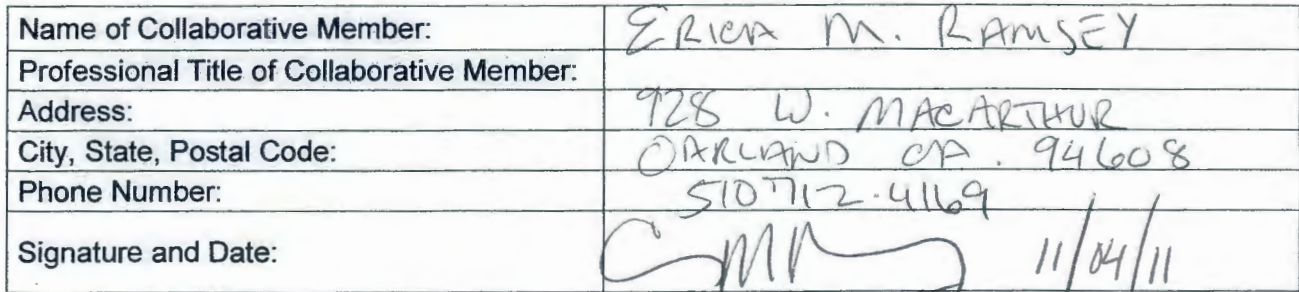 Name of Collaborative Member: ERICA M. RAMSEY
Professional Title of Collaborative Member:
Address: 928 W. MACARTHUR
City, State, Postal Code: OAKLAND CA. 94608
Phone Number: 510 712-4169
Signature and Date: 11/04/11